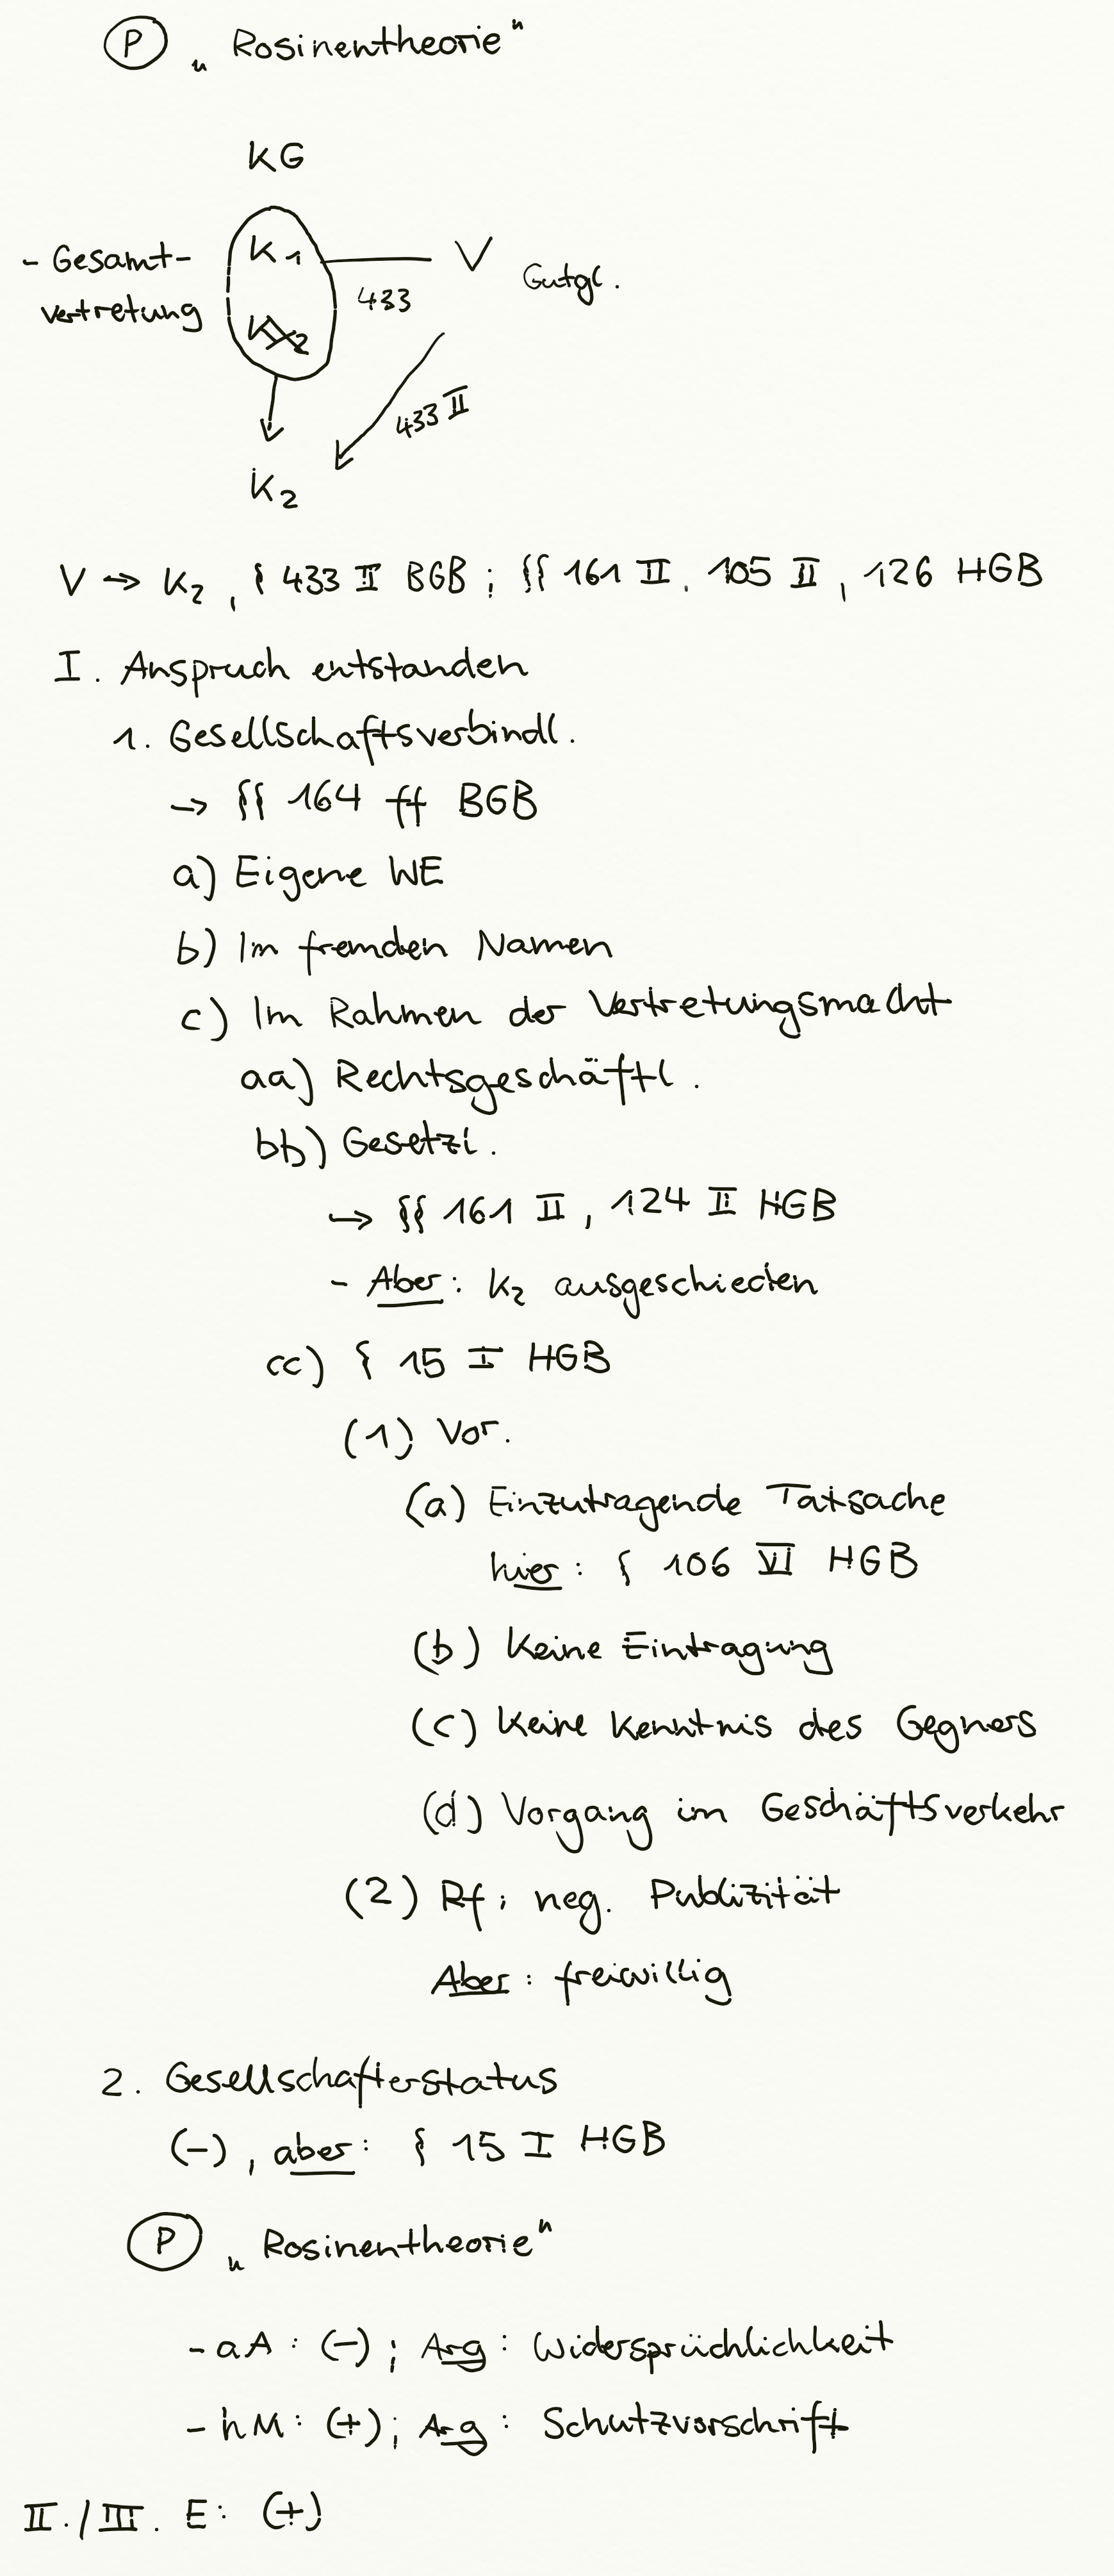 P „Rosinentheorie"
KG
- Gesamt-
vertretung
K1
K2
433
V
Gutgl.
433 II
K2
V → K2, § 433 II BGB; §§ 161 II, 105 II, 126 HGB
I. Anspruch entstanden
1. Gesellschaftsverbindl.
→ §§ 164 ff BGB
a) Eigene WE
b) Im fremden Namen
c) Im Rahmen der Vertretungsmacht
aa) Rechtsgeschäftl.
bb) Gesetzl.
→ §§ 161 II, 124 II HGB
- Aber: K2 ausgeschieden
cc) § 15 I HGB
(1) Vor.
(a) Einzutragende Tatsache
hier: § 106 VI HGB
(b) Keine Eintragung
(c) Keine Kenntnis des Gegners
(d) Vorgang im Geschäftsverkehr
(2) Rf: neg. Publizität
Aber: freiwillig
2. Gesellschafterstatus
(-), aber: § 15 I HGB
P „Rosinentheorie"
- aA: (-); Arg: Widersprüchlichkeit
- hM: (+); Arg: Schutzvorschrift
II./III. E: (+)